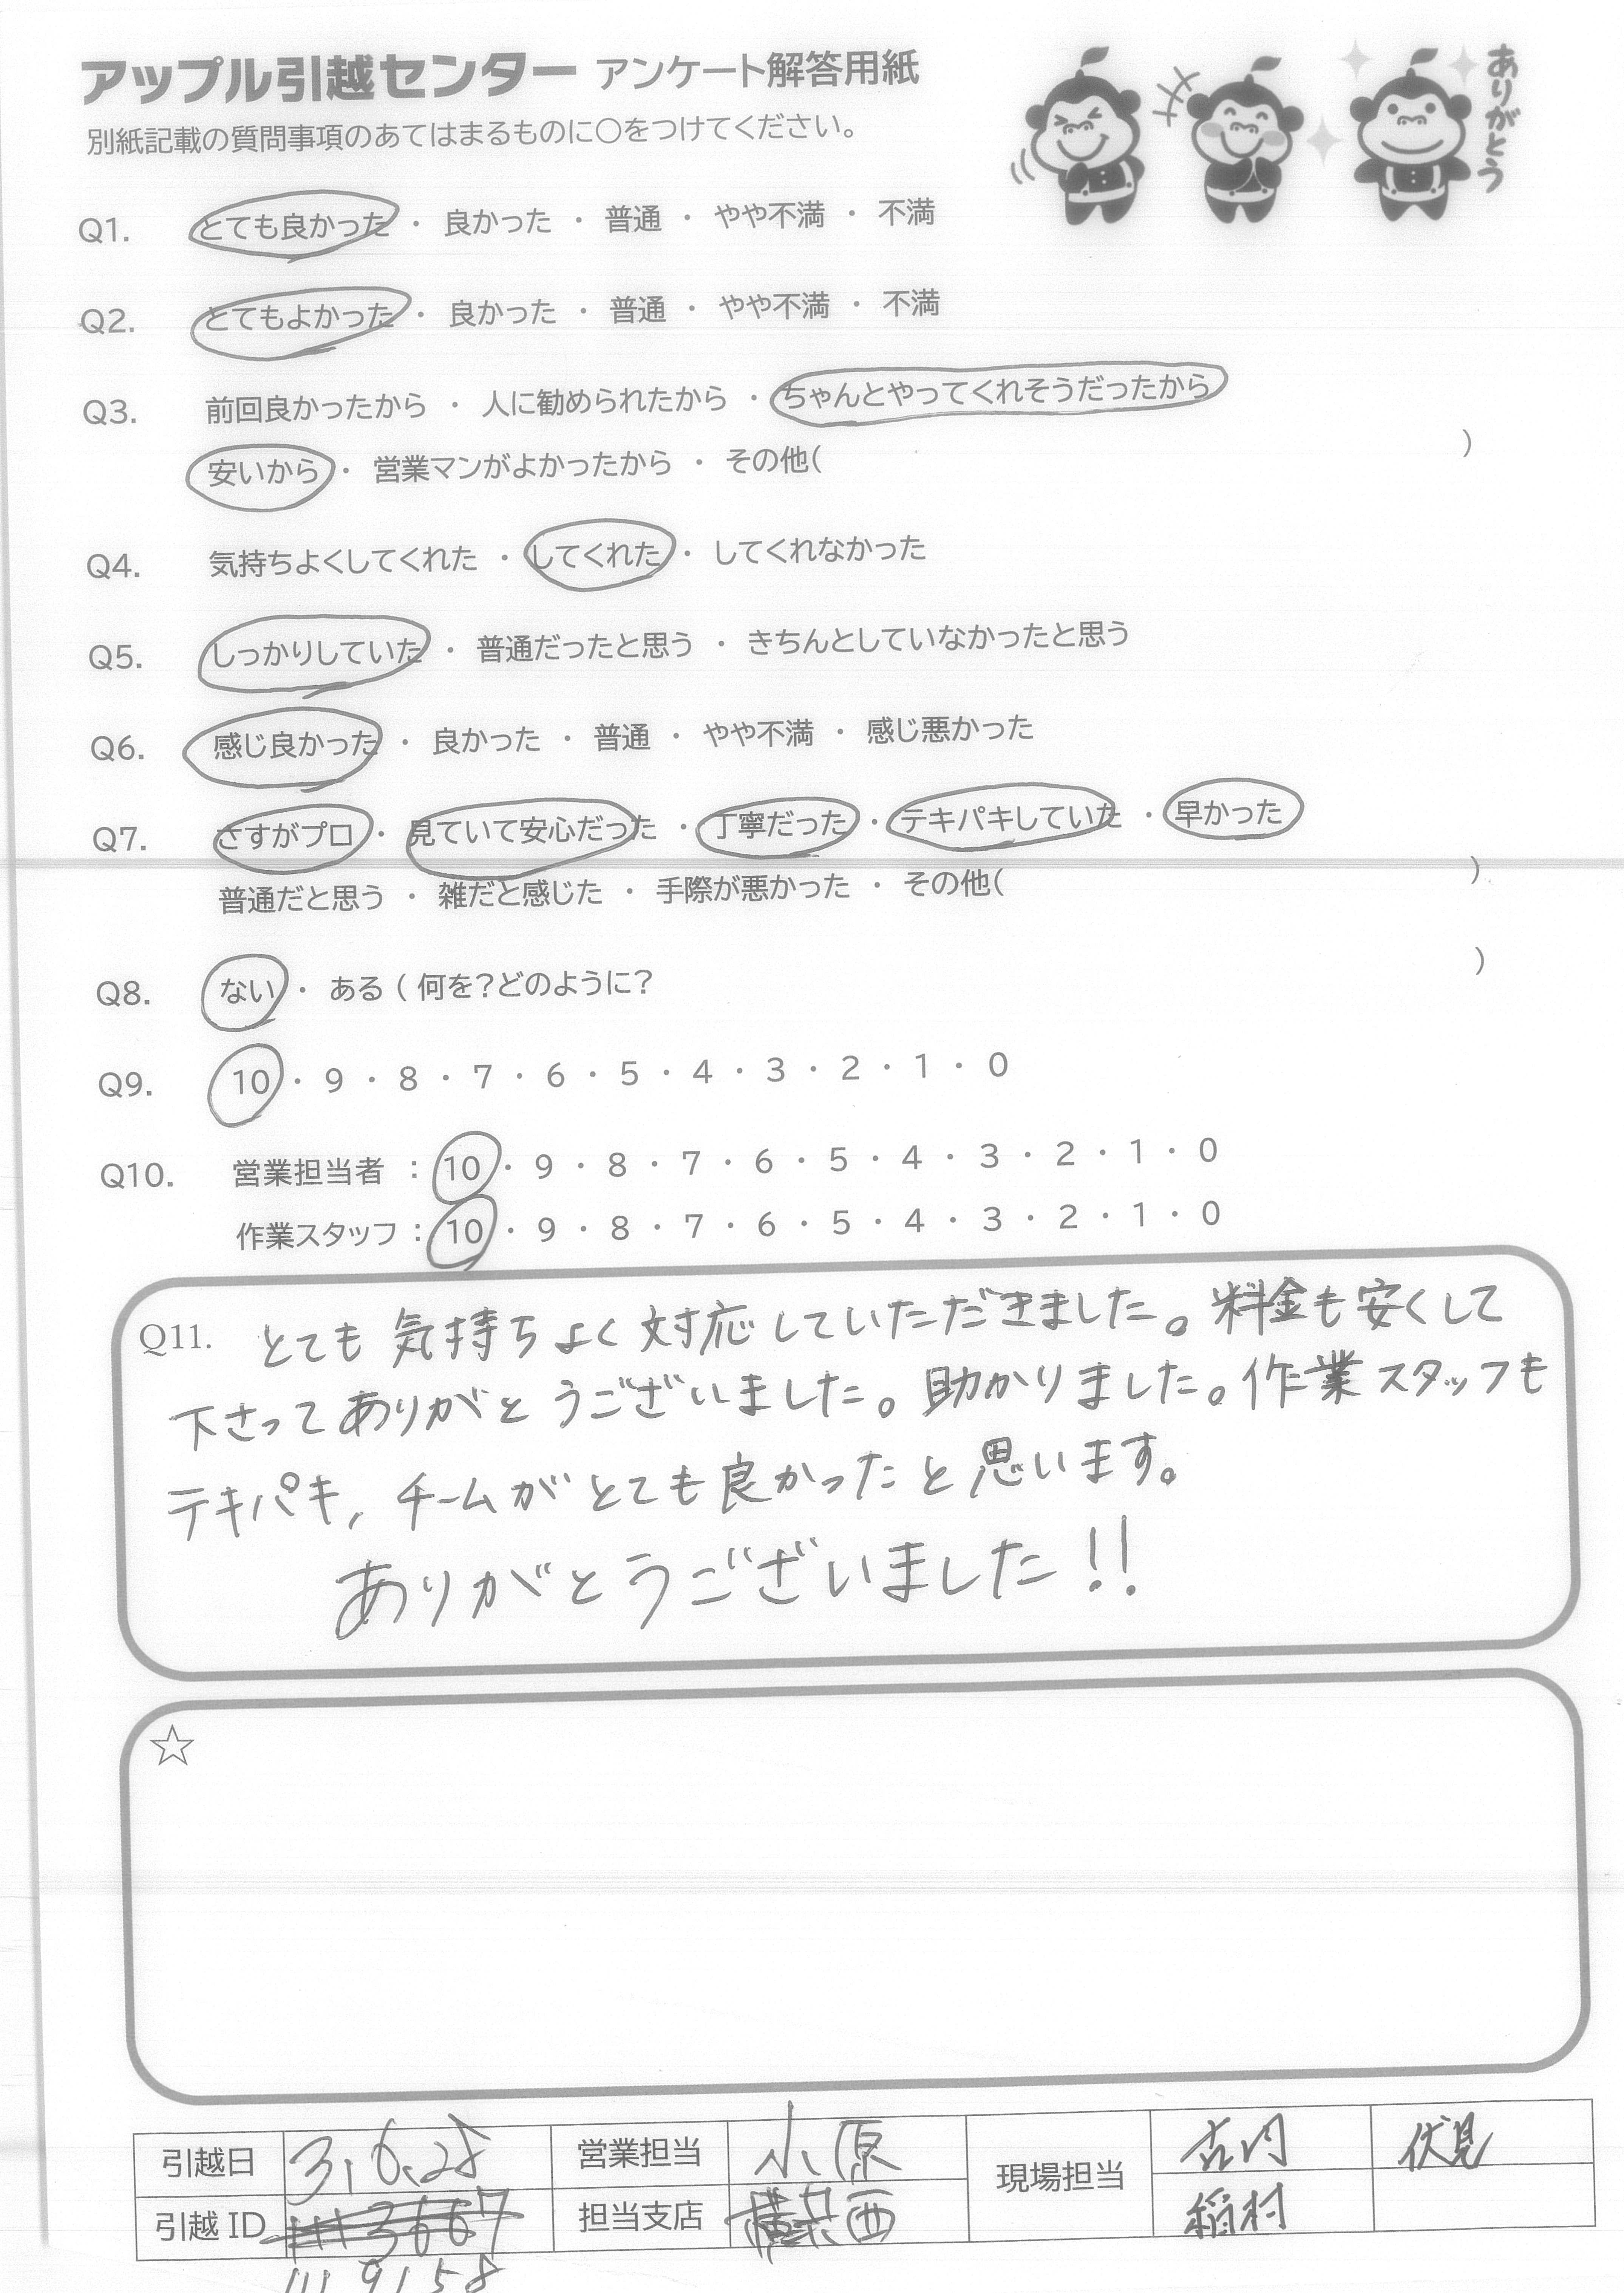 アップル引越センター アンケート解答用紙
ありがとう
別紙記載の質問事項のあてはまるものに○をつけてください。
Q1. とても良かった ・ 良かった ・ 普通 ・ やや不満 ・ 不満
Q2. とてもよかった ・ 良かった ・ 普通 ・ やや不満 ・ 不満
Q3. 前回良かったから ・ 人に勧められたから ・ ちゃんとやってくれそうだったから
安いから ・ 営業マンがよかったから ・ その他( )
Q4. 気持ちよくしてくれた ・ してくれた ・ してくれなかった
Q5. しっかりしていた ・ 普通だったと思う ・ きちんとしていなかったと思う
Q6. 感じ良かった ・ 良かった ・ 普通 ・ やや不満 ・ 感じ悪かった
Q7. さすがプロ ・ 見ていて安心だった ・ 丁寧だった ・ テキパキしていた ・ 早かった
普通だと思う ・ 雑だと感じた ・ 手際が悪かった ・ その他( )
Q8. ない ・ ある ( 何を?どのように? )
Q9. 10 ・ 9 ・ 8 ・ 7 ・ 6 ・ 5 ・ 4 ・ 3 ・ 2 ・ 1 ・ 0
Q10. 営業担当者 : 10 ・ 9 ・ 8 ・ 7 ・ 6 ・ 5 ・ 4 ・ 3 ・ 2 ・ 1 ・ 0
作業スタッフ : 10 ・ 9 ・ 8 ・ 7 ・ 6 ・ 5 ・ 4 ・ 3 ・ 2 ・ 1 ・ 0
Q11. とても気持ちよく対応していただきました。料金も安くして
下さってありがとうございました。助かりました。作業スタッフも
テキパキ, チームがとても良かったと思います。
ありがとうございました!!
☆
引越日 3.6.28 営業担当 小原 現場担当 古内 伏見
引越ID 担当支店 横浜西 稲村
1119158